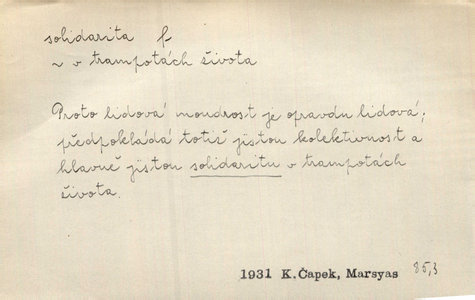 solidarita f
~ v trampotách života
Proto lidová moudrost je opravdu lidová;
předpokládá totiž jistou kolektivnost a
hlavně jistou solidaritu v trampotách
života.
1931 K. Čapek, Marsyas 85,3